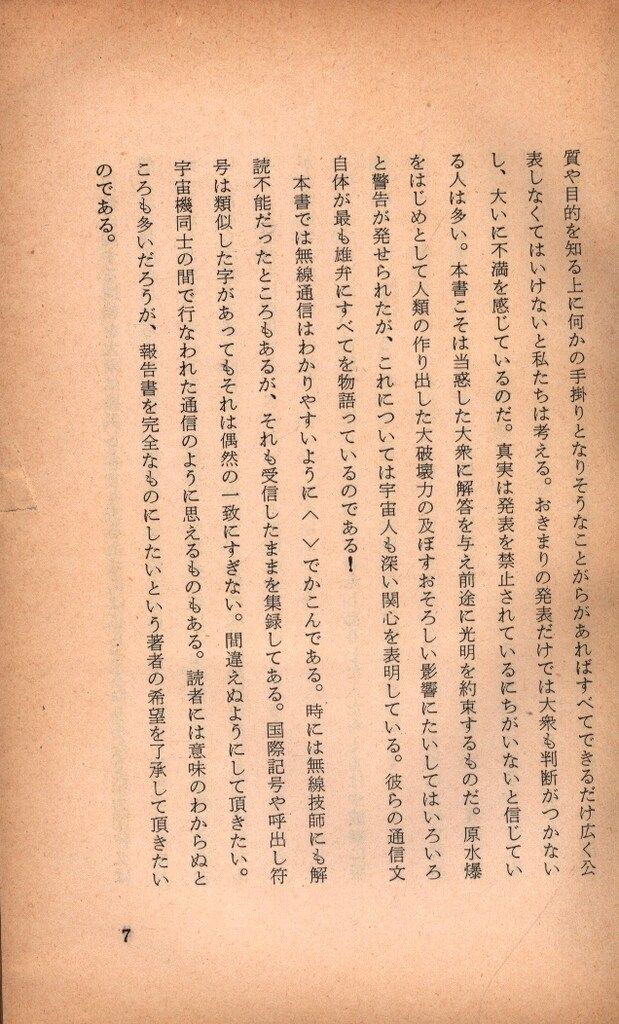 質や目的を知る上に何かの手掛りとなりそうなことがらがあればすべてできるだけ広く公
表しなくてはいけないと私たちは考える。おきまりの発表だけでは大衆も判断がつかない
し、大いに不満を感じているのだ。真実は発表を禁止されているにちがいないと信じてい
る人は多い。本書こそは当惑した大衆に解答を与え前途に光明を約束するものだ。原水爆
をはじめとして人類の作り出した大破壊力の及ぼすおそろしい影響にたいしてはいろいろ
と警告が発せられたが、これについては宇宙人も深い関心を表明している。彼らの通信文
自体が最も雄弁にすべてを物語っているのである！
本書では無線通信はわかりやすいように〈 〉でかこんである。時には無線技師にも解
読不能だったところもあるが、それも受信したままを集録してある。国際記号や呼出し符
号は類似した字があってもそれは偶然の一致にすぎない。間違えぬようにして頂きたい。
宇宙機同士の間で行なわれた通信のように思えるものもある。読者には意味のわからぬと
ころも多いだろうが、報告書を完全なものにしたいという著者の希望を了承して頂きたい
のである。
7